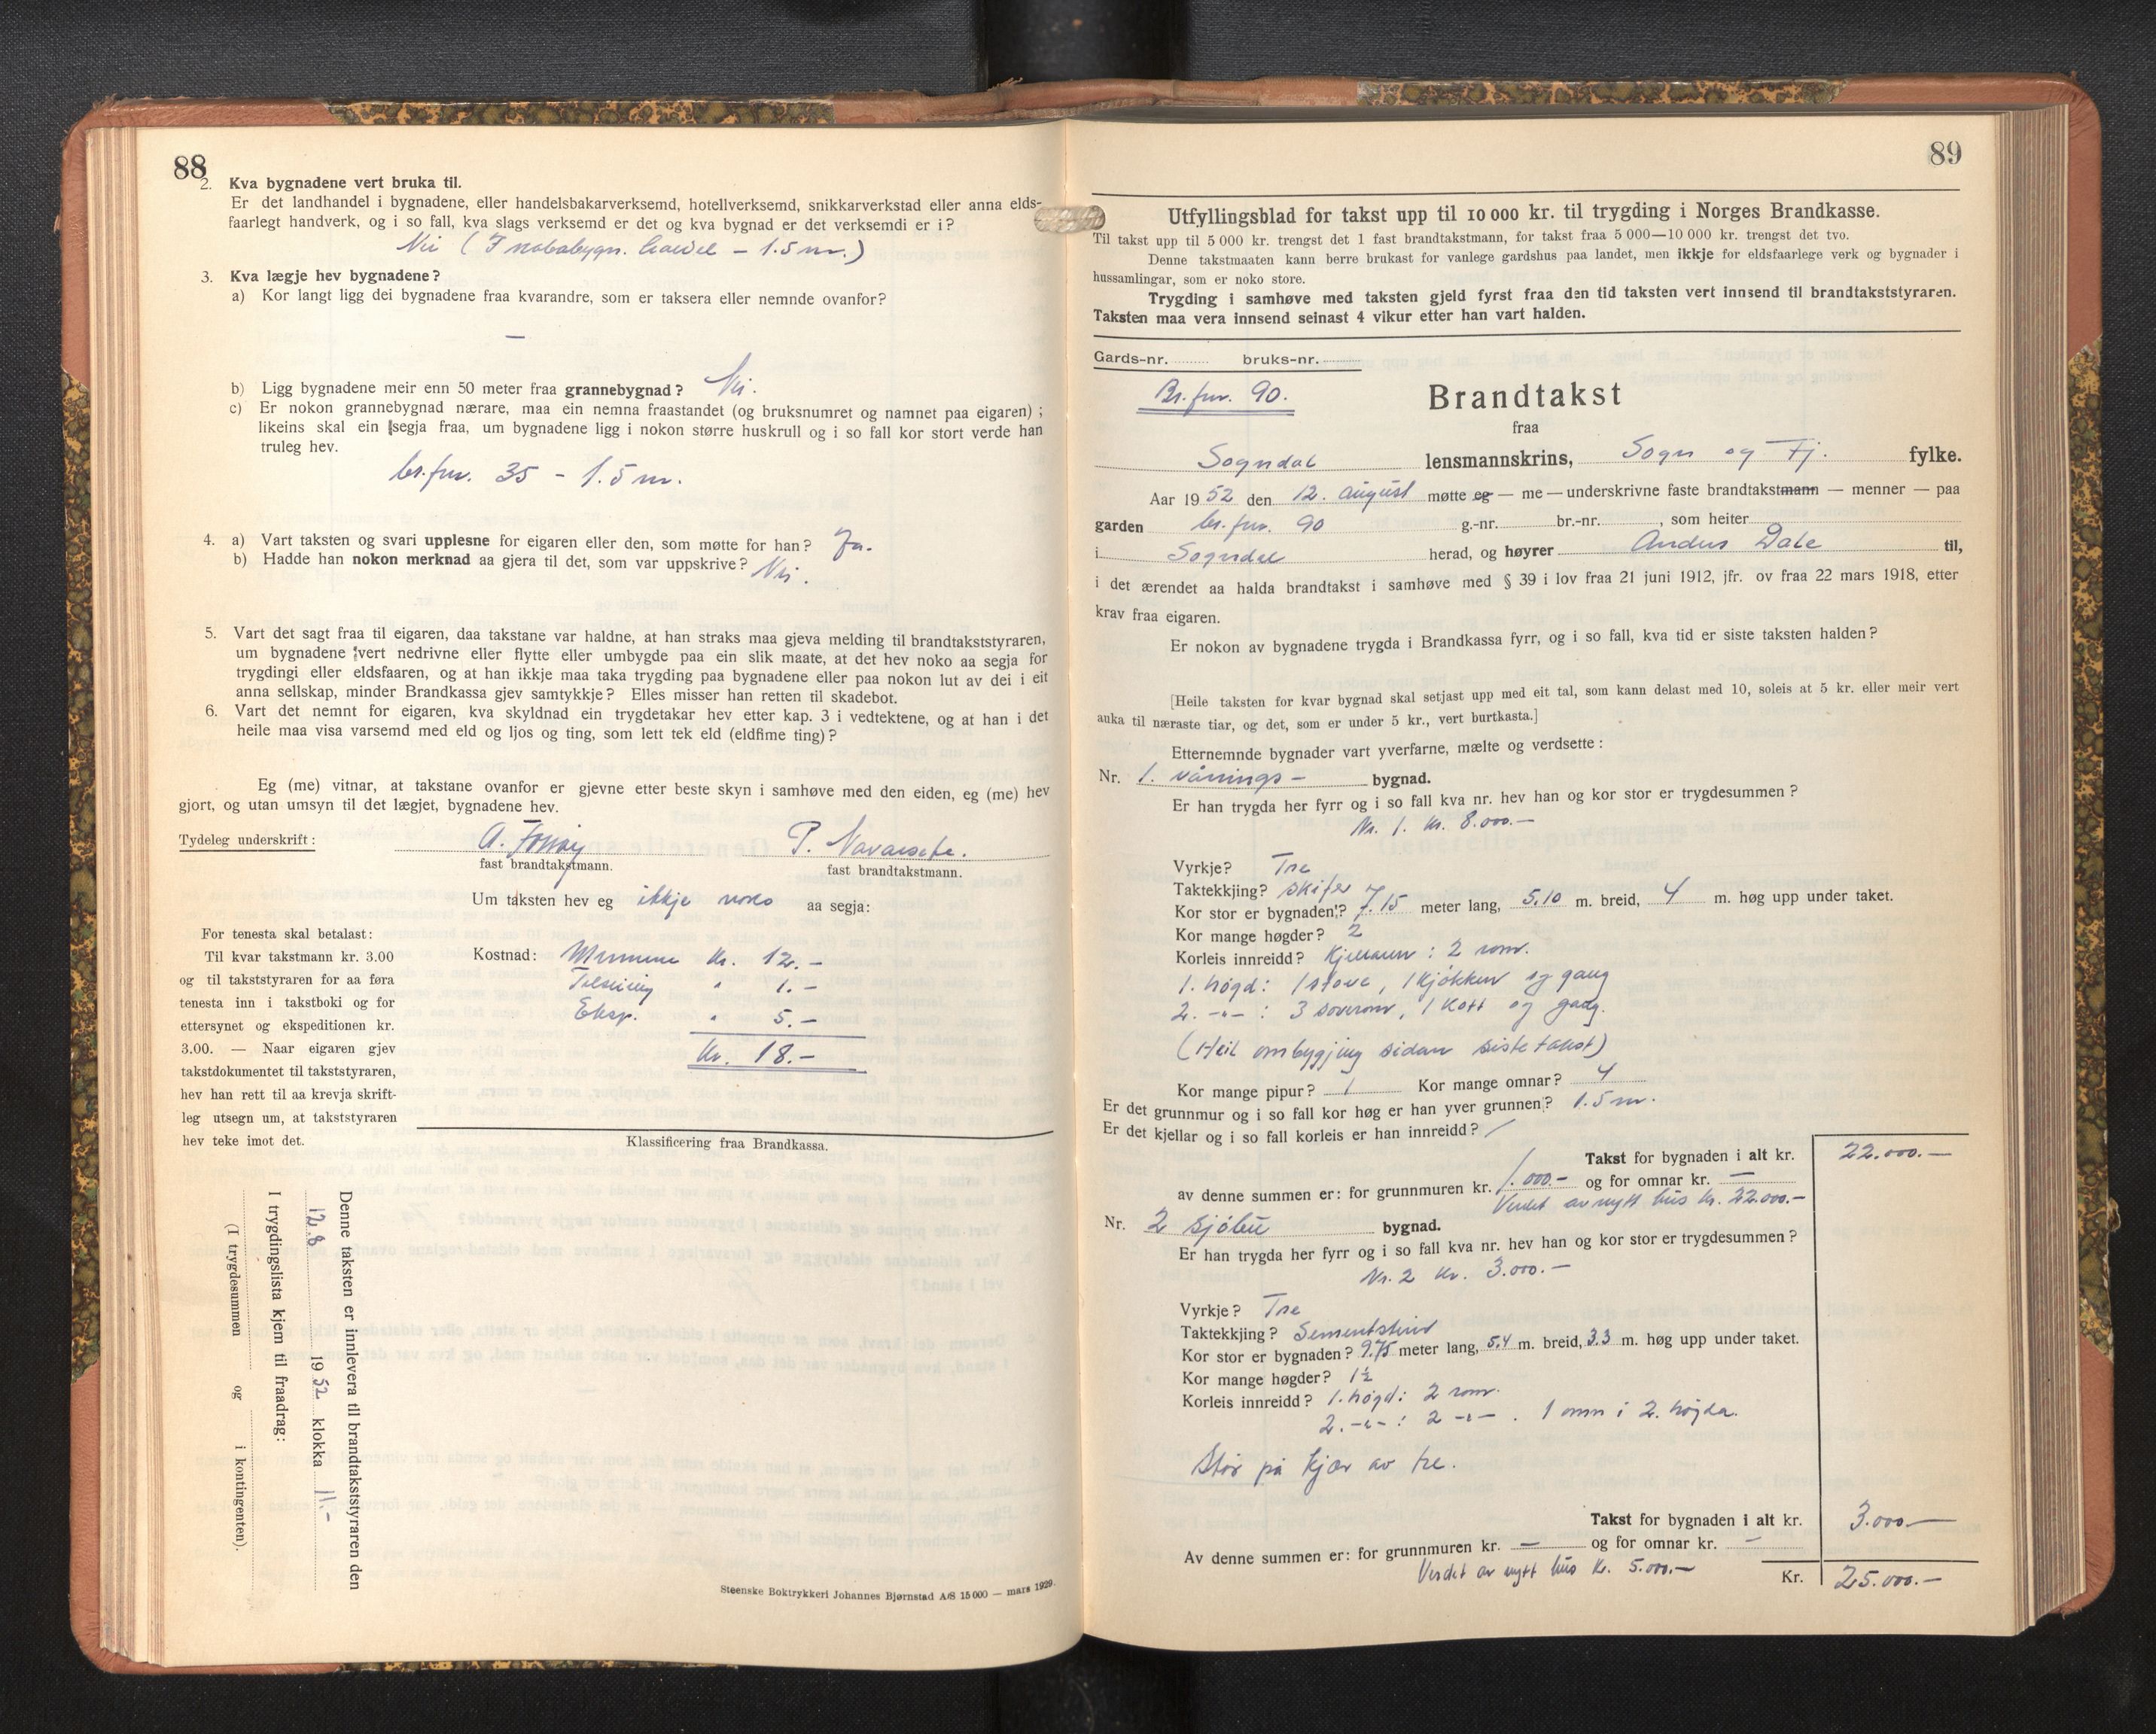 88
2. Kva bygnadene vert bruka til.
Er det landhandel i bygnadene, eller handelsbakarverksemd, hotellverksemd, snikkarverkstad eller anna elds-
faarlegt handverk, og i so fall, kva slags verksemd er det og kva bygnad er det verksemdi er i?
Nei ( I nabobygn. handel – 1.5 m.)
3. Kva lægje hev bygnadene?
a) Kor langt ligg dei bygnadene fraa kvarandre, som er taksera eller nemnde ovanfor?
—
b) Ligg bygnadene meir enn 50 meter fraa grannebygnad? Nei.
c) Er nokon grannebygnad nærare, maa ein nemna fraastandet (og bruksnumret og namnet paa eigaren) ;
likeins skal ein segja fraa, um bygnadene ligg i nokon større huskrull og i so fall kor stort verde han
truleg hev.
br.fnr. 35 – 1.5 m.
4. a) Vart taksten og svari upplesne for eigaren eller den, som møtte for han? Ja.
b) Hadde han nokon merknad aa gjera til det, som var uppskrive? Nei.
5. Vart det sagt fraa til eigaren, daa takstane var haldne, at han straks maa gjeva melding til brandtakststyraren,
um bygnadene vert nedrivne eller flytte eller umbygde paa ein slik maate, at det hev noko aa segja for
trygdingi eller eldsfaaren, og at han ikkje maa taka trygding paa bygnadene eller paa nokon lut av dei i eit
anna sellskap, minder Brandkassa gjev samtykkje? Elles misser han retten til skadebot.
6. Vart det nemnt for eigaren, kva skyldnad ein trygdetakar hev etter kap. 3 i vedtektene, og at han i det
heile maa visa varsemd med eld og ljos og ting, som lett tek eld (eldfime ting)?
Eg (me) vitnar, at takstane ovanfor er gjevne etter beste skyn i samhøve med den eiden, eg (me) hev
gjort, og utan umsyn til det lægjet, bygnadene hev.
Tydeleg underskrift: A. P. Navarsete.
fast brandtakstmann. fast brandtakstmann.
Um taksten hev eg ikkje noko aa segja:
For tenesta skal betalast:
Til kvar takstmann kr. 3.00
og til takststyraren for aa føra
tenesta inn i takstboki og for
ettersynet og ekspeditionen kr.
3.00. — Naar eigaren gjev
takstdokumentet til takststyraren,
hev han rett til aa krevja skrift-
leg utsegn um, at takststyraren
hev teke imot det.
Kostnad: Mennene Kr. 12.–
" 1.–
Eksp. " 5.–
Kr. 18.–
Klassificering fraa Brandkassa.
Denne taksten er innlevera til brandtakststyraren den
12.8 1952 klokka 11.-
I trygdingslista kjem til fraadrag:
(I trygdesummen og i kontingenten).
Steenske Boktrykkeri Johannes Bjørnstad A/S 15 000 — mars 1929.
89
Utfyllingsblad for takst upp til 10 000 kr. til trygding i Norges Brandkasse.
Til takst upp til 5 000 kr. trengst det 1 fast brandtakstmann, for takst fraa 5 000—10 000 kr. trengst det tvo.
Denne takstmaaten kann berre brukast for vanlege gardshus paa landet, men ikkje for eldsfaarlege verk og bygnader i
hussamlingar, som er noko store.
Trygding i samhøve med taksten gjeld fyrst fraa den tid taksten vert innsend til brandtakststyraren.
Taksten maa vera innsend seinast 4 vikur etter han vart halden.
Gards-nr. bruks-nr.
Br.fnr. 90.
Brandtakst
fraa
Sogndal lensmannskrins, Sogn og Fj. fylke.
Aar 1952 den 12. august møtte eg — me — underskrivne faste brandtakstmann — menner — paa
garden br.fnr. 90 g.-nr. br.-nr. , som heiter
i Sogndal herad, og høyrer Anders Dale til,
i det ærendet aa halda brandtakst i samhøve med § 39 i lov fraa 21 juni 1912, jfr. ov fraa 22 mars 1918, etter
krav fraa eigaren.
Er nokon av bygnadene trygda i Brandkassa fyrr, og i so fall, kva tid er siste taksten halden?
[Heile taksten for kvar bygnad skal setjast upp med eit tal, som kann delast med 10, soleis at 5 kr. eller meir vert
auka til næraste tiar, og det, som er under 5 kr., vert burtkasta.]
Etternemnde bygnader vart yverfarne, mælte og verdsette:
Nr. 1. vånings– bygnad.
Er han trygda her fyrr og i so fall kva nr. hev han og kor stor er trygdesummen?
Nr. 1. Kr. 8.000.–
Vyrkje? Tre
Taktekkjing? skifer
Kor stor er bygnaden? 7.15 meter lang, 5,10 m. breid, 4 m. høg upp under taket.
Kor mange høgder? 2
Korleis innreidd? Kjellaren: 2 rom.
1. høgd: 1 stove, 1 kjøkken og gang
2. –"– : 3 soverom, 1 kott og gang.
(Heil ombygjing sidan siste takst)
Kor mange pipur? 1 Kor mange omnar? 4
Er det grunnmur og i so fall kor høg er han yver grunnen? 1.5 m.
Er det kjellar og i so fall korleis er han innreidd? /
Takst for bygnaden i alt kr. 22.000.–
av denne summen er: for grunnmuren kr. 1.000.– og for omnar kr. —
Verdet av nytt hus kr. 22.000.–
Nr. 2 sjöbu bygnad.
Er han trygda her fyrr og i so fall kva nr. hev han og kor stor er trygdesummen?
Nr. 2 Kr. 3.000.–
Vyrkje? Tre
Taktekkjing? Sementstein
Kor stor er bygnaden? 9.75 meter lang, 5.4 m. breid, 3.3 m. høg upp under taket.
Kor mange høgder? 1½
Korleis innreidd? 1. høgd: 2 rom.
2. –"– : 2 –"– . 1 omn i 2. høgda.
Står på kjer av tre.
Takst for bygnaden i alt kr. 3.000.–
Av denne summen er: for grunnmuren kr. — og for omnar kr. –
Verdet av nytt hus Kr. 5.000.–
Kr. 25.000.–